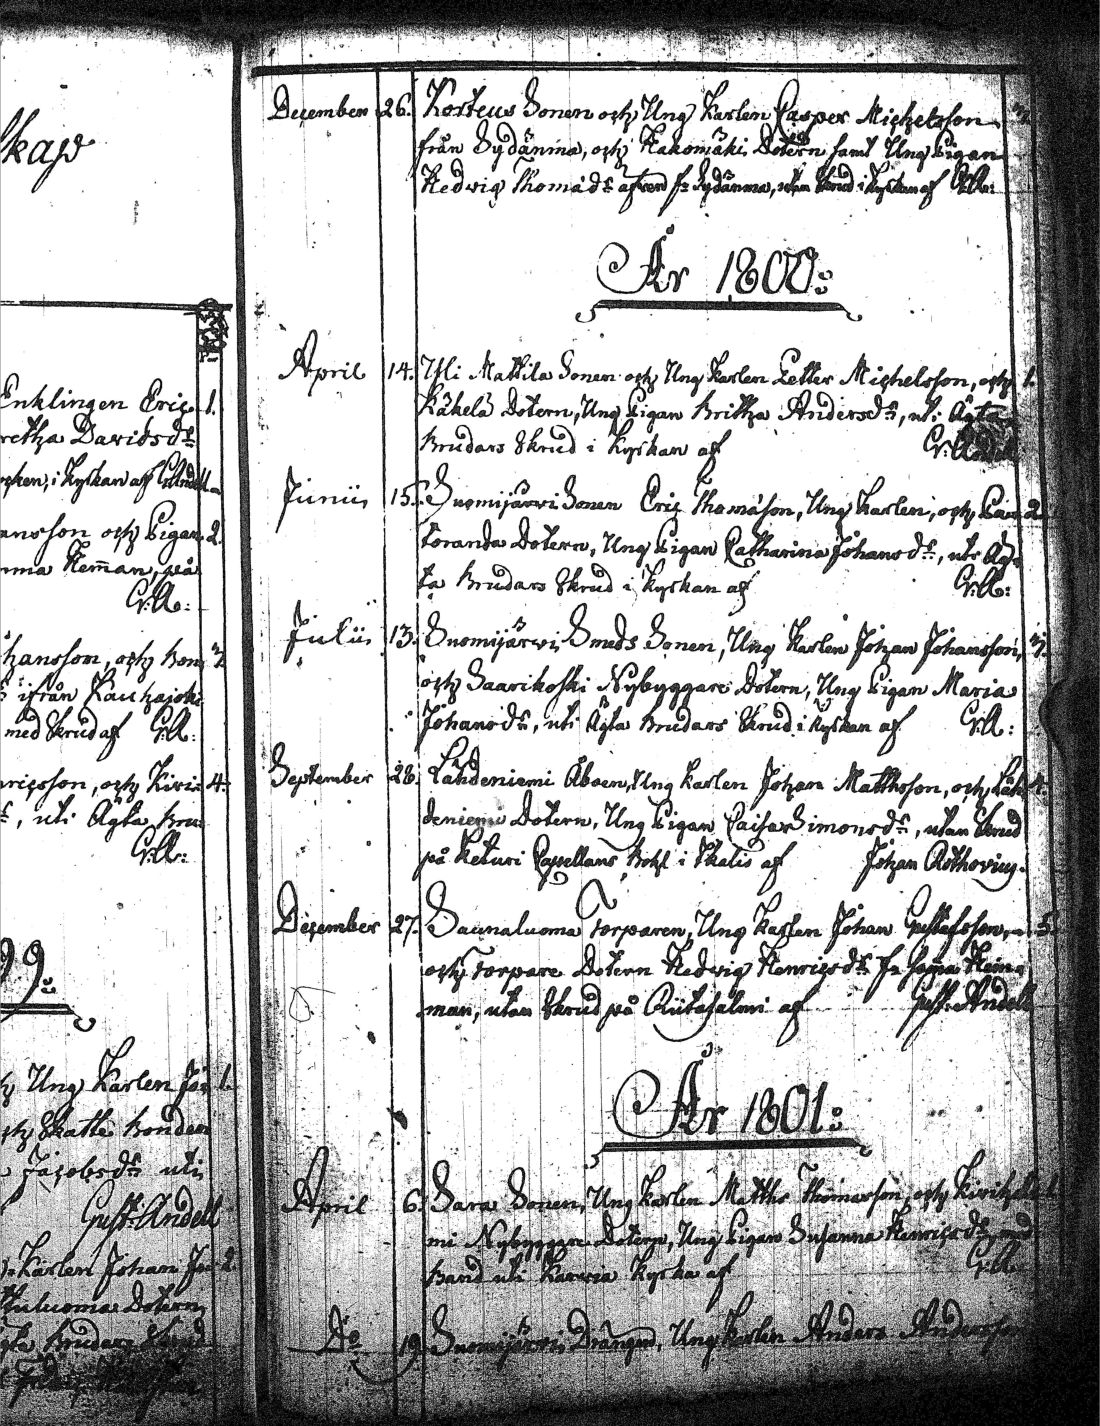 skap
Enklingen Eric 1.
retha Davidsdr
ocken, i Kyrkan af
ansson och Pigan 2.
nma Hemman, på
G:A:
hansson, och Bon 3.
ifrån Kauhajoki
med Skrud af G:A:
ricsson, och Kivi 4.
uti Ägta Bru
G:A:
99:
Ung Karlen Jo 1.
och Skatte Bonden
Jacobsdr uti
Gust: Andell
Karlen Johan Jo 2.
luluoma Dotern
gta Brudars Skrud
December 26. Korteus Sonen och Ung Karlen Casper Michelsson 3.
från Sydänma, och Hakomäki Dotern samt Ung Pigan
Hedwig Thomædr afven fr Sydänma, utan Skrud i Kyrkan af G:A:
År 1800:
April 14. Yli Mattila Sonen och Ung Karlen Petter Michelsson, och 1.
Käkelä Dotern, Ung Pigan Britha Andersdr, uti Ägta
Brudars Skrud i Kyrkan af G: Andell
Junii 15. Suomijärwi Sonen Eric Thomason, Ung Karlen, och Paa 2.
toranda Dotern, Ung Pigan Catharina Johansdr, uti Äg-
ta Brudars Skrud i Kyrkan af G:A:
Julii 13. Suomijärwi Smeds Sonen, Ung Karlen Johan Johansson, 3.
och Saarikoski Nybyggare Dotern, Ung Pigan Maria
Johansdr, uti Ägta Brudars Skrud i Kyrkan af G:A:
September 28. Lähdeniemi Åboen, Ung Karlen Johan Matthsson, och Läh 4.
deniemi Dotern, Ung Pigan Caisa Simonsdr, utan Skrud
på Keturi Capellans Bohl i Ikalis af Johan Rothovius.
December 27. Saunaluoma Torparen, Ung Karlen Johan Gustafsson, 5.
och Torpare Dotern Hedwig Henricsdr fr samma Hem
man, utan Skrud på Riitasalmi af Gust: Andell
År 1801:
April 6. Sara Sonen, Ung Karlen Matths Thomasson, och Kivihal 1.
mi Nybyggare Dotern, Ung Pigan Susanna Henricsdr, med
Band uti Karwia Kyrka af G:A:
Do 19. Suomijärwi Drängen, Ung Karlen Anders Andersson